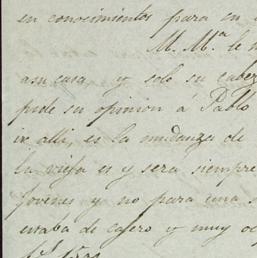 en conocimientos para en
M. Mª le
am casa, y solo su cabeza
pide su opinion á Pablo
ir alli, es la mudanza de
la vieja es y sera siempre
jovenes y no para una
estaba de casero y muy